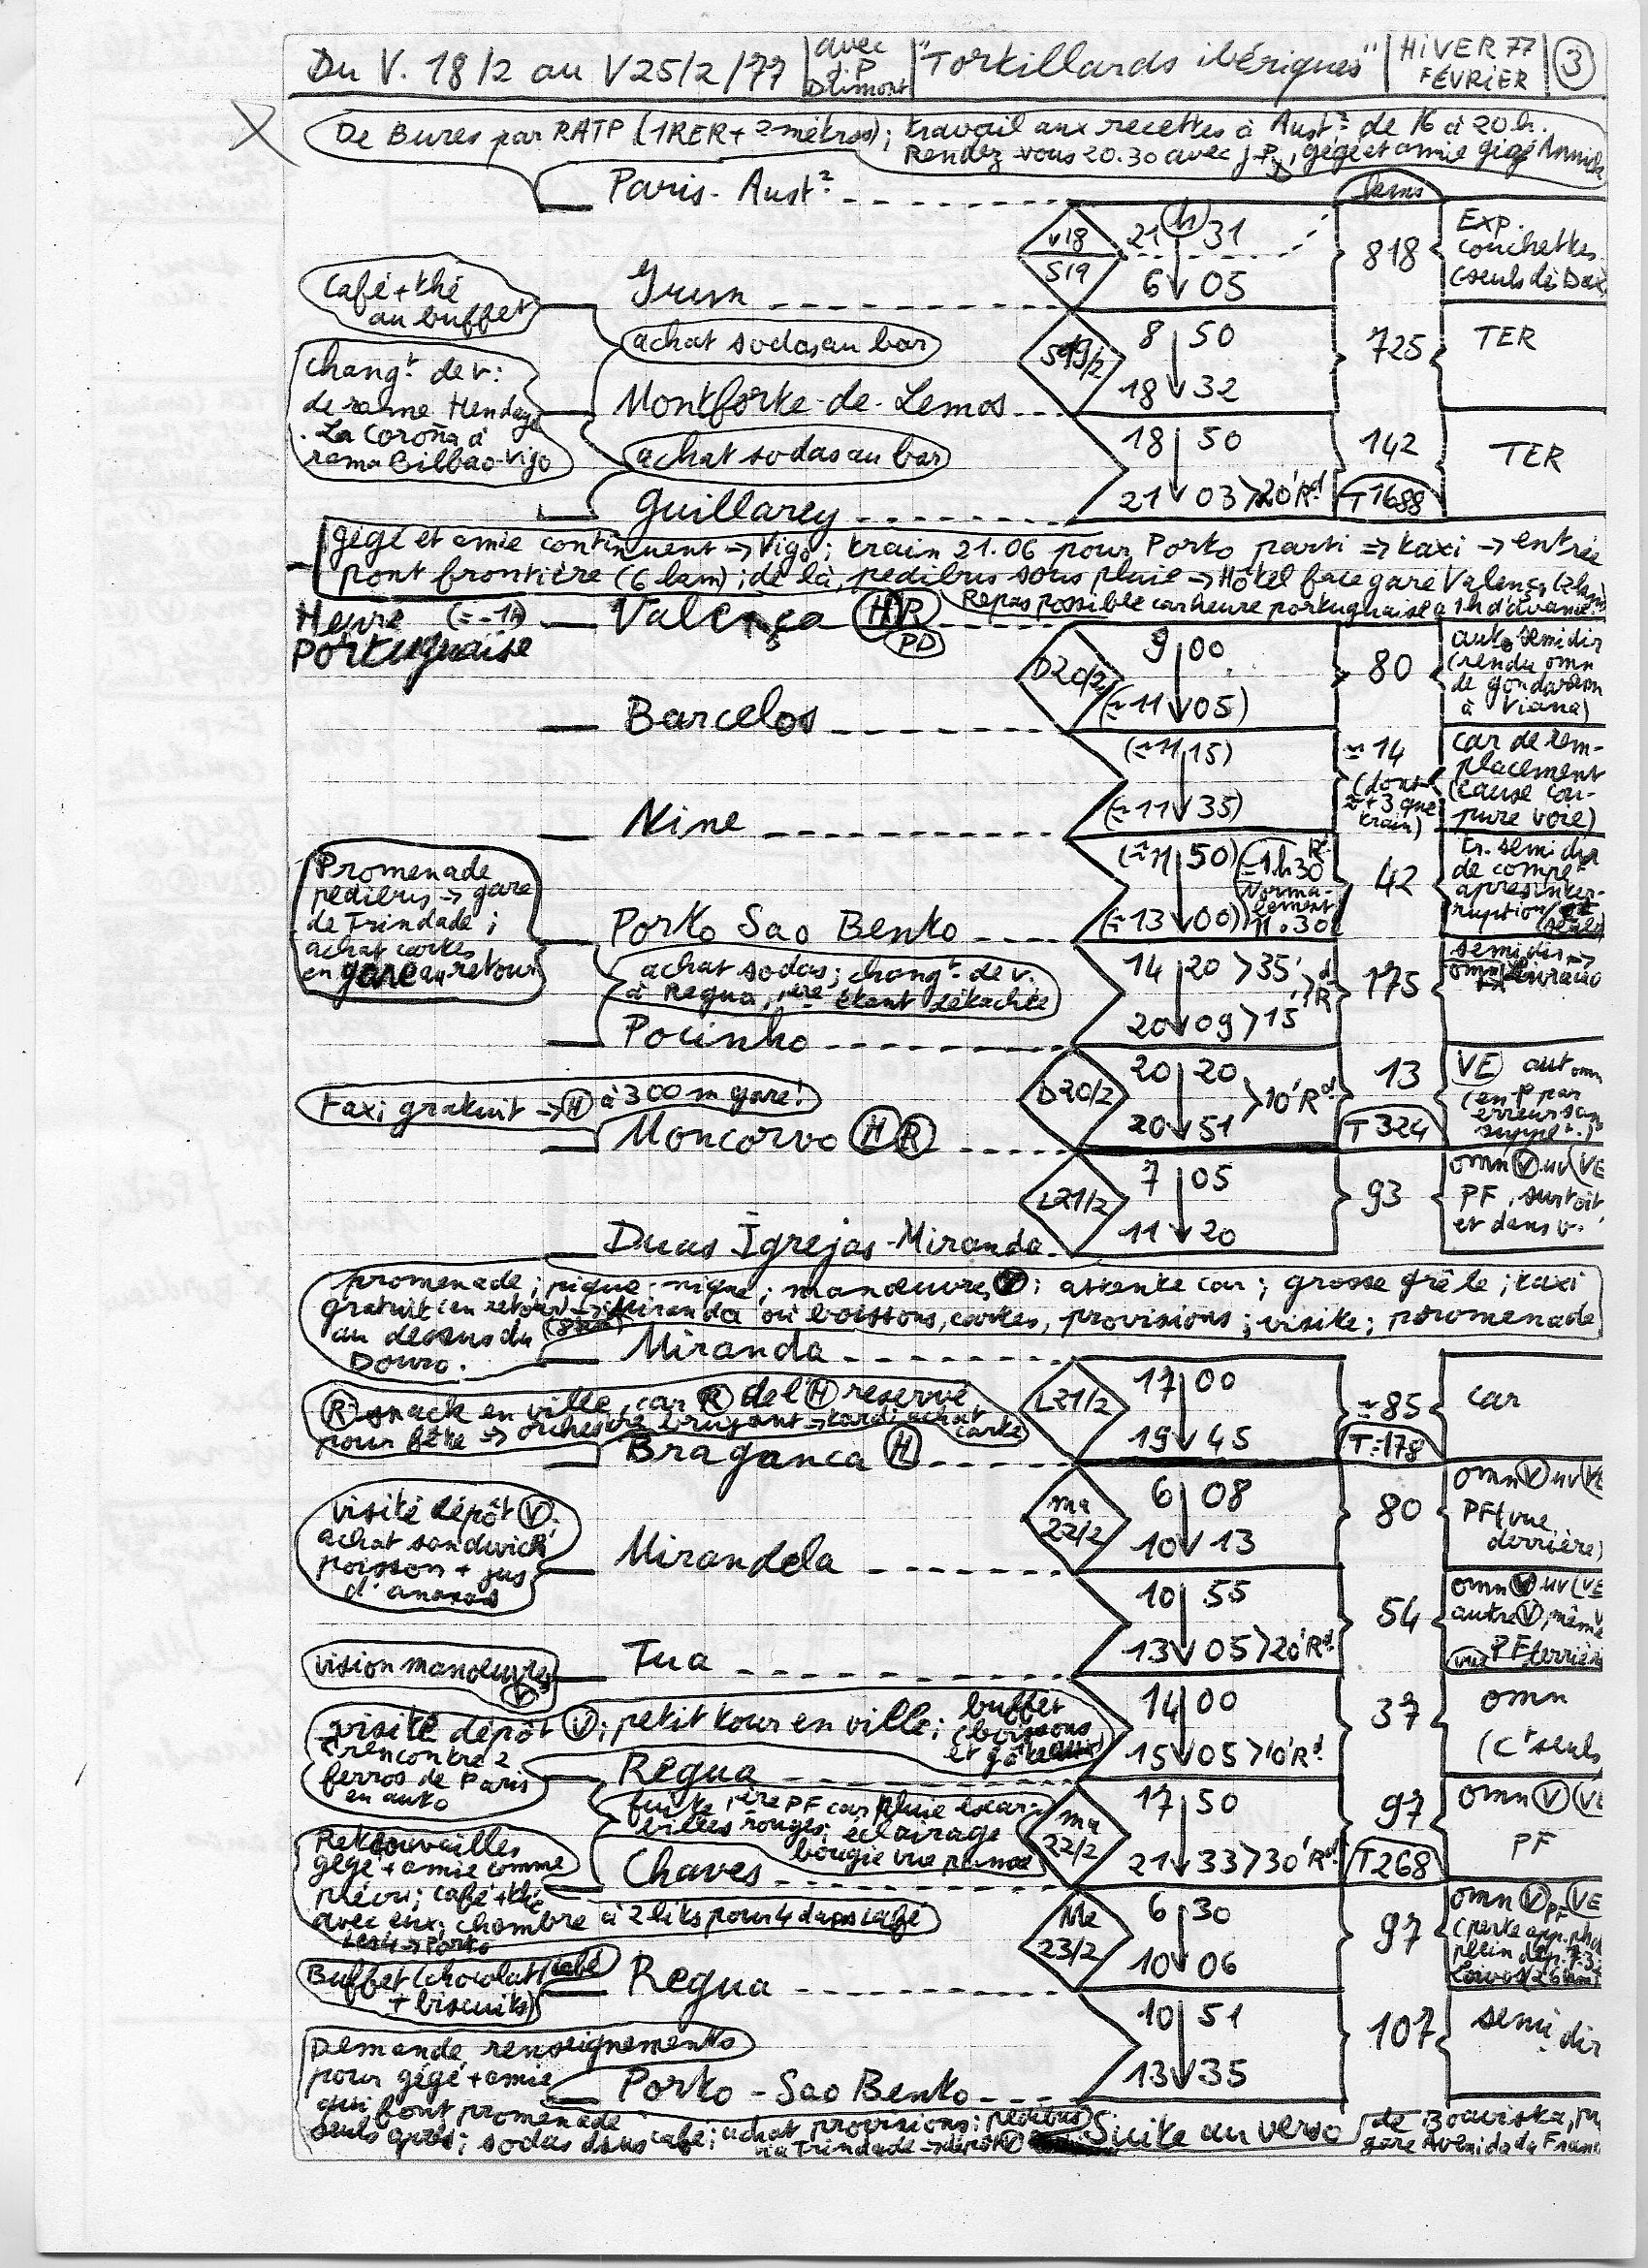 Du V. 18/2 au V25/2/77
avec J.P Dlimont
"Tortillards ibériques"
HIVER 77
FÉVRIER
3
De Bures par RATP (1RER + 2 métros); travail aux recettes à Aust? de 16 à 20 h.
Rendez-vous 20.30 avec J-P, gégé et amie gigé Annick
Paris-Aust?
kems
V18
21 h 31
818
Exp.
couchettes
(seuls dès Dax
S19
6 05
Café + thé
au buffet
Irun
achat sodas au bar
S19/2
8 50
725
TER
18 32
chang.t de v:
de rame Hendaye
-La Coroña à
rame Bilbao-Vigo
Montforte-de-Lemos
achat sodas au bar
18 50
142
TER
21 03 >20'R.d
T1688
Guillarey
gégé et amie continuent → Vigo; train 21.06 pour Porto parti => taxi → entrée
pont frontière (6 km); de là, pedibus sous pluie → Hôtel face gare Valença (2km)
Repas possible car heure portuguaise a 1h d'avance
Heure (=-1h)
Portuguaise
Valença H R
PD
D20/2
9 00
80
auto semidir
(rendu omn
de gondarem
à Viana)
(≃11 05)
Barcelos
(≃11 15)
≃14
(dont
≃+3 que
train)
car de rem-
placement
(cause cou-
pure voie)
(≃11 35)
Nine
(≃11 50)
≃1h30 R.d
Norma-
lement
11.30
42
tr. semi dir
de compt
après inter-
ruption
(≃13 00)
Promenade
pedibus → gare
de Trindade;
achat cartes
en gare au retour
Porto Sao Bento
achat sodas; chang.t de v.
à Regua, 1ère étant détachée
14 20 >35'
R.d
175
semidir →
omn Livracao
20 09 >15'
Pocinho
D20/2
20 20
>10'R.d
13
VE aut omn
(en 1e par
erreur san
suppl.t)
20 51
T 324
taxi gratuit → H à 300 m gare!
Moncorvo H R
L21/2
7 05
93
omn V uv (VE
PF, sur toit
et dans v.
11 20
Duas Igrejas-Miranda
promenade; pique-nique; manœuvre V; attente car; grosse grêle; taxi
gratuit (en retour) → Miranda où boissons, cartes, provisions; visite; promenade
au dessus du (8km)
Douro.
Miranda
L21/2
17 00
≃85
car
19 45
T≃178
R snack en ville, car R de l'H réservé
pour fête → orchestre bruyant → tard; achat
carte
Bragança H
ma
22/2
6 08
80
omn V uv (VE
PF (vue
derrière)
10 13
visite dépôt V.
achat sandwich
poisson + jus
d'ananas
Mirandela
10 55
54
omn V uv (VE
autre V, même
vue PF derrière
13 05 >20'R.d
vision manœuvres
V
Tua
14 00
37
omn
(Ct seuls
15 05 >10'R.d
visite dépôt V; petit tour en ville; buffet
(boissons
et gâteaux)
rencontre 2
ferros de Paris
en auto
Regua
fuite 1ère PF car pluie escar-
billes rouges; éclairage
bougie vue panne
ma
22/2
17 50
97
omn V (VE
PF
21 33 >30'R.d
T268
Retrouvailles
gégé + amie comme
prévu; café + thé
avec eux; chambre à 2 lits pour 4 dans café
les 4 → Porto
Chaves
Me
23/2
6 30
97
omn V PF (VE
(perte app. pho
plein dép. 7.32
Loivos (26km)
10 06
Buffet (chocolat/café
+ biscuits)
Regua
10 51
107
semi dir
13 35
Demande renseignements
pour gégé + amie
qui font promenade
seuls après; sodas dans café; achat provisions; pedibus
via Trindade → dépôt V
Porto-Sao Bento
Suite au verso
de Boavista, pu
gare Avenida da Franc